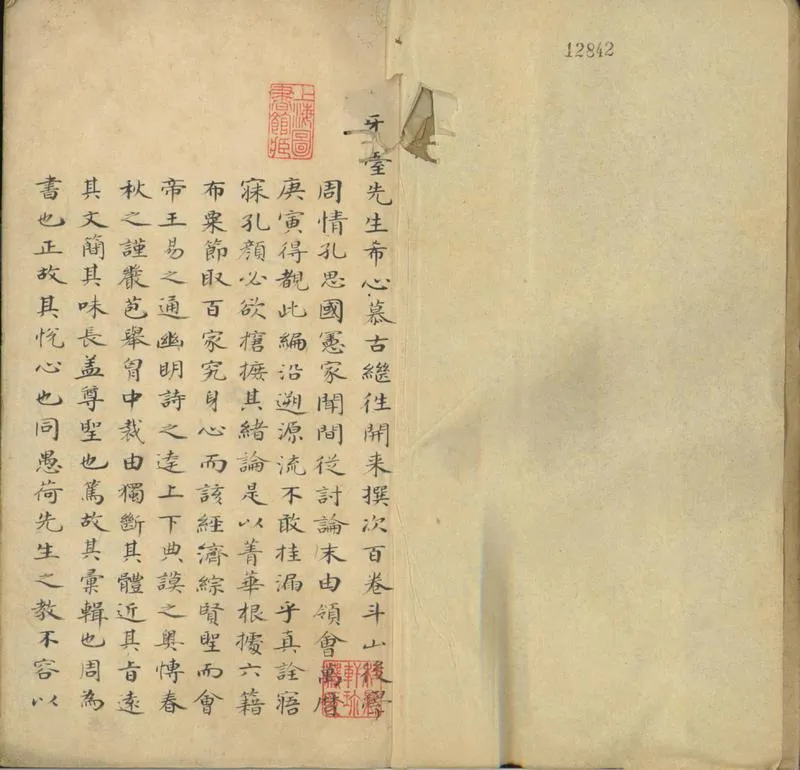 12842
上海圖
書館藏
臺先生希心慕古繼徃開来撰次百卷斗山後學
周情孔思國憲家聞間從討論末由領會萬曆
庚寅得覩此編沿遡源流不敢挂漏乎真詮寤
寐孔顏必欲摭其緒論是以菁華根據六籍
布粟節取百家究身心而該經濟綜賢聖而會
帝王易之通幽明詩之逹上下典謨之奥愽春
秋之謹嚴苞舉胷中裁由獨斷其體近其旨遠
其文簡其味長盖尊聖也篤故其彙輯也周為
書也正故其恱心也同愚荷先生之教不容以